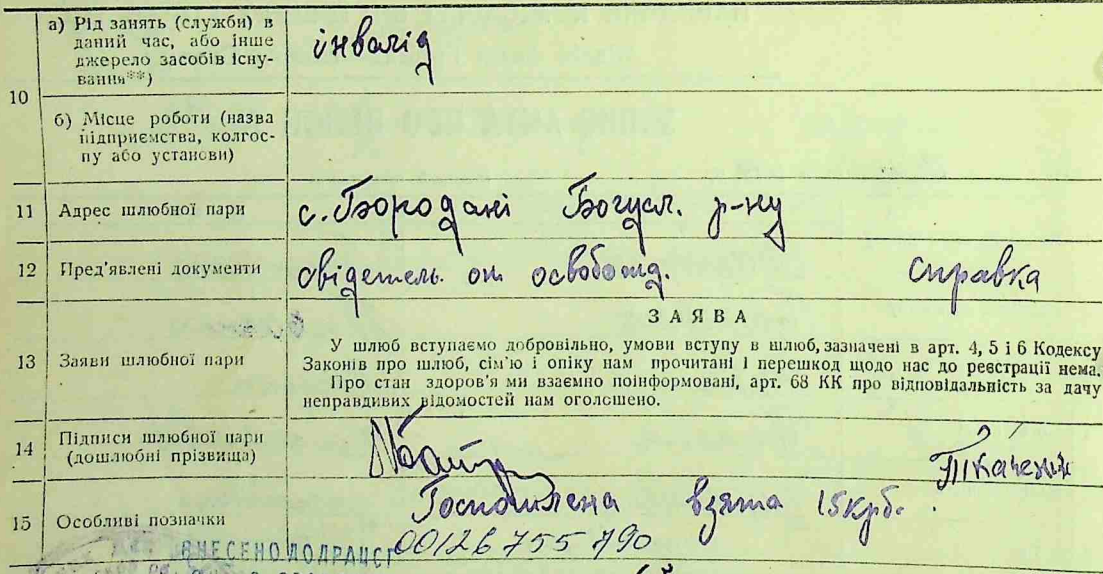 10 а) Рід занять (служби) в даний час, або інше джерело засобів існування**) інвалід
б) Місце роботи (назва підприємства, колгоспу або установи)
11 Адрес шлюбної пари с. Бородані Богусл. р-ну
12 Пред'явлені документи свідетель. от освобожд. справка
ЗАЯВА
13 Заяви шлюбної пари У шлюб вступаємо добровільно, умови вступу в шлюб, зазначені в арт. 4, 5 і 6 Кодексу
Законів про шлюб, сім'ю і опіку нам прочитані і перешкод щодо нас до реєстрації нема.
Про стан здоров'я ми взаємно поінформовані, арт. 68 КК про відповідальність за дачу
неправдивих відомостей нам оголошено.
14 Підписи шлюбної пари (дошлюбні прізвища) Ткаченк
15 Особливі позначки Госпошлена взята 15 крб.
00126755790
ВНЕСЕНО ДО ДРАЦСГ